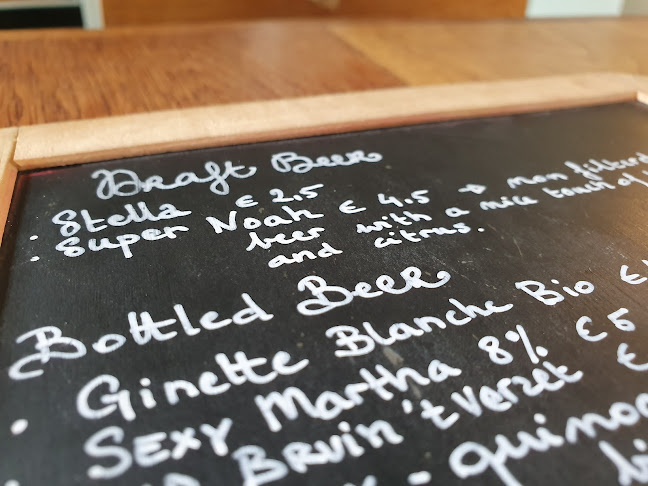 Draft Beer
· Stella € 2.5
· Super Noah € 4.5 → non filtered
beer with a nice touch of
and citrus.
Bottled Beer
· Ginette Blanche Bio €
SEXY Martha 8% € 5
BRUIN 't Verzet €
- quinoa